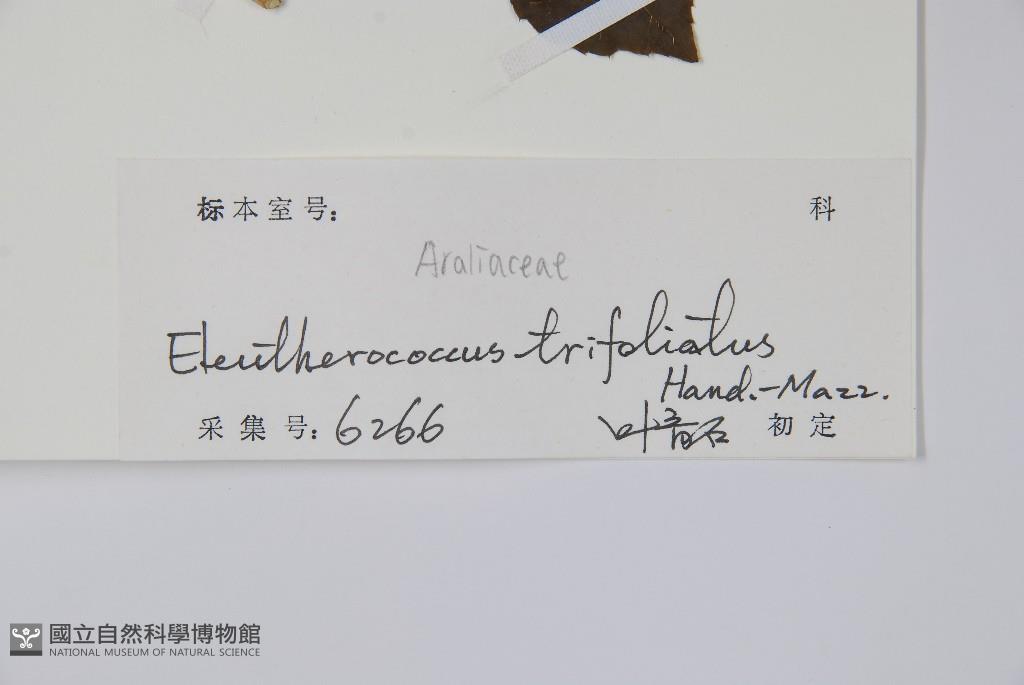 标本室号: 科
Araliaceae
Eleutherococcus trifoliatus
Hand.-Mazz.
采集号: 6266 叶 初定
國立自然科學博物館
NATIONAL MUSEUM OF NATURAL SCIENCE